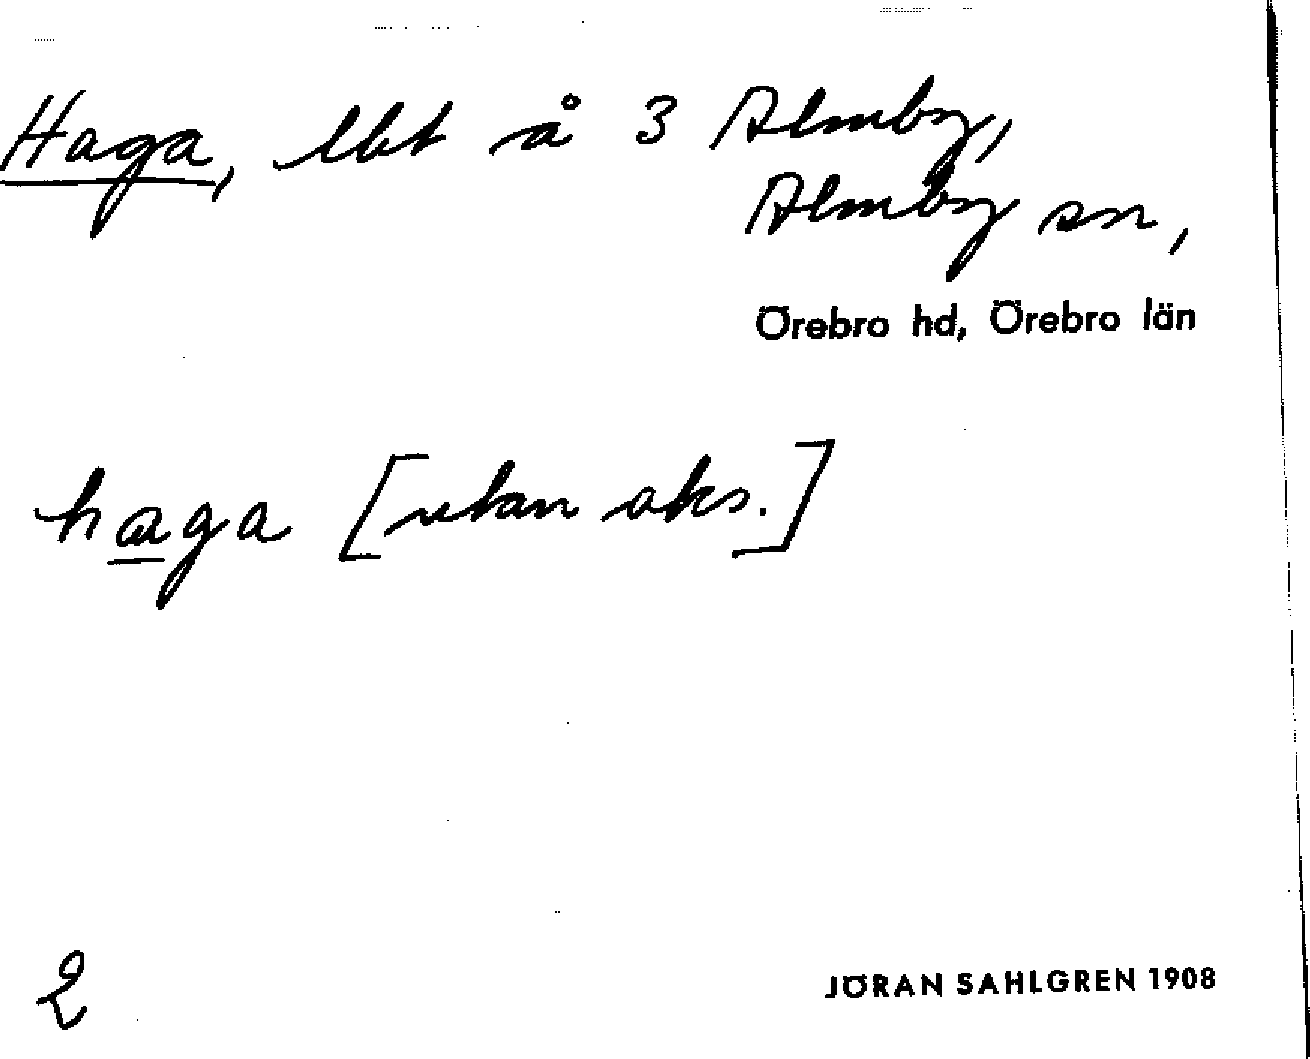 Haga, lht å 3 Almby,
Almby sn,
Örebro hd, Örebro län
haga [utan aks.]
2
JÖRAN SAHLGREN 1908